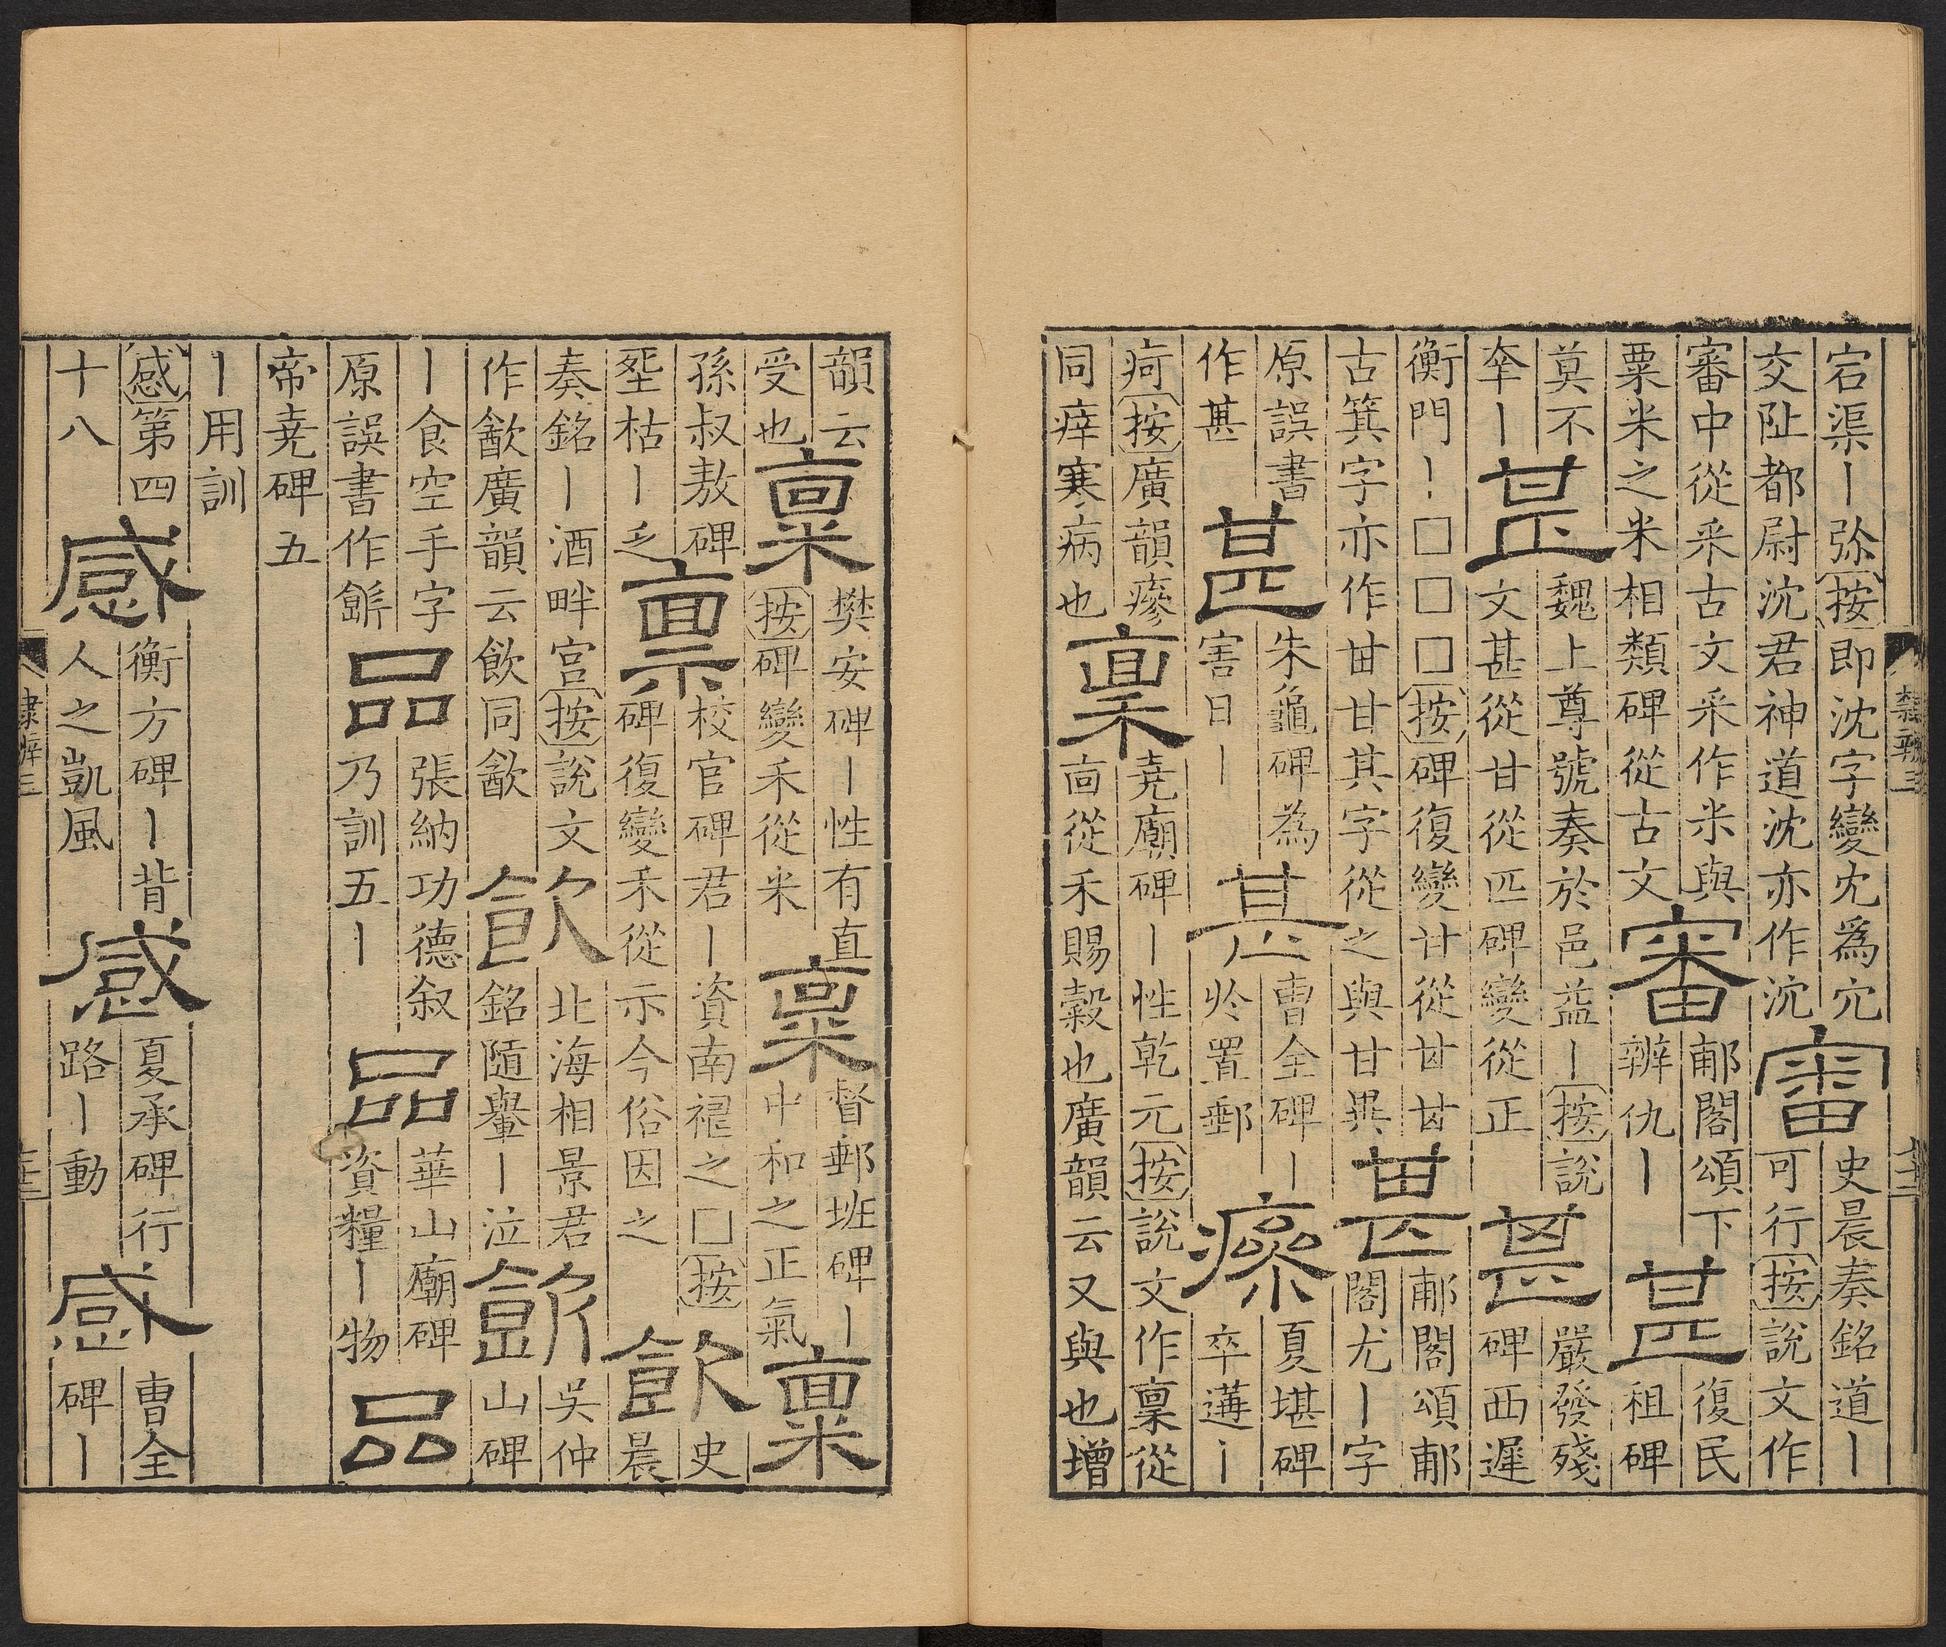 宕渠丨弥按即沈字變冘爲宂審史晨奏銘道丨
交阯都尉沈君神道沈亦作沉可行按說文作
審中從釆古文釆作米與審郙閣頌下復民
粟米之米相類碑從古文辨仇丨甚祖碑
莫不甚魏上尊號奏於邑益丨按說嚴發殘
牽丨文甚從甘從匹碑變從正甚碑西遲
衡門丨□□□按碑復變甘從甘郙閣頌郙
古箕字亦作甘其字從之與甘異甚閣尤丨字
原誤書甚朱龜碑為甚曹全碑丨㾕夏堪碑
作甚害日丨於置郵卒遘丨
疴按廣韻瘮堯廟碑丨性乾元按說文作稟從
同痒寒病也稟㐭從禾賜穀也廣韻云又與也增
韻云樊安碑丨性有直督郵班碑丨
受也稟按碑變禾從米稟中和之正氣稟
孫叔敖碑校官碑君丨資南褆之□按史
坙枯丨乏禀碑復變禾從示今俗因之飲晨
奏銘丨酒畔宮按說文北海相景君吳仲
作㱃廣韻云飲同㱃飲銘隨轝丨泣飲山碑
丨食空手字張納功德叙華山廟碑
原誤書作品乃訓五丨品資糧丨物品
帝堯碑五
丨用訓
感第四衡方碑丨背夏承碑行曹全
十八感人之凱風感路丨動感碑丨
隸辨三